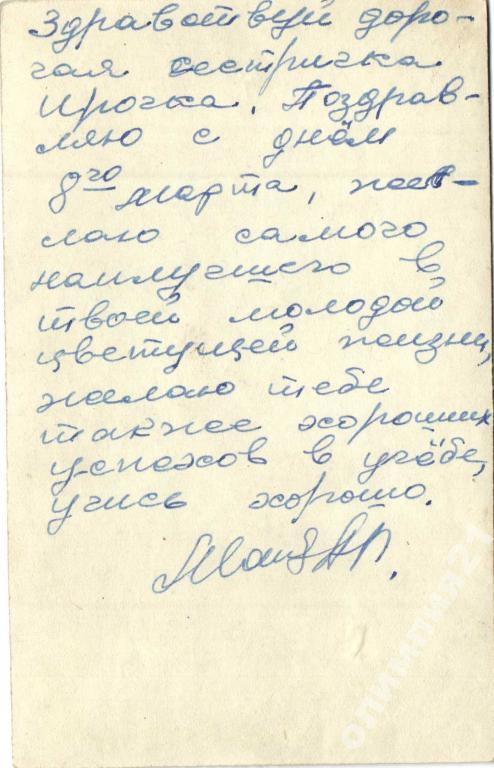 Здравствуй доро-
гая сестричка
Ирочка. Поздрав-
ляю с днём
8го марта, же-
лаю самого
наилучшего в
твоей молодой
цветущей жизни,
желаю тебе
также хороших
успехов в учёбе,
учись хорошо.
олимпия21